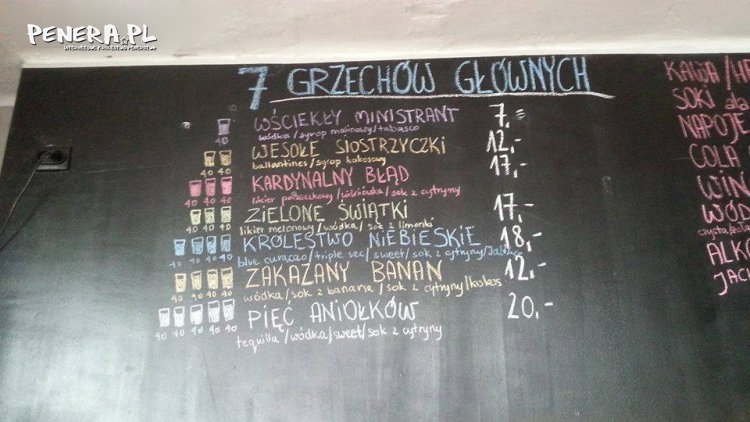 PENERA.PL
7 GRZECHÓW GŁÓWNYCH
40 WŚCIEKŁY MINISTRANT 7,=
wódka/syrop malinowy/tabasco
40 40 WESOŁE SIOSTRZYCZKI 12,-
ballantines/syrop kokosowy
40 40 40 KARDYNALNY BŁĄD 17,-
likier porzeczkowy/wiśniówka/sok z cytryny
40 40 40 ZIELONE ŚWIĄTKI 17,-
likier melonowy/wódka/sok z limonki
40 40 40 40 KRÓLESTWO NIEBIESKIE 18,-
blue curaçao/triple sec/sweet/sok z cytryny
40 40 40 40 ZAKAZANY BANAN 12,-
wódka/sok z banana/sok z cytryny/kokos
40 40 40 40 40 PIĘĆ ANIOŁKÓW 20,-
tequilla/wódka/sweet/sok z cytryny
KAWA/HE
SOKI ala
NAPOJE
COLA
WIN
WÓD
ALKO
JACK